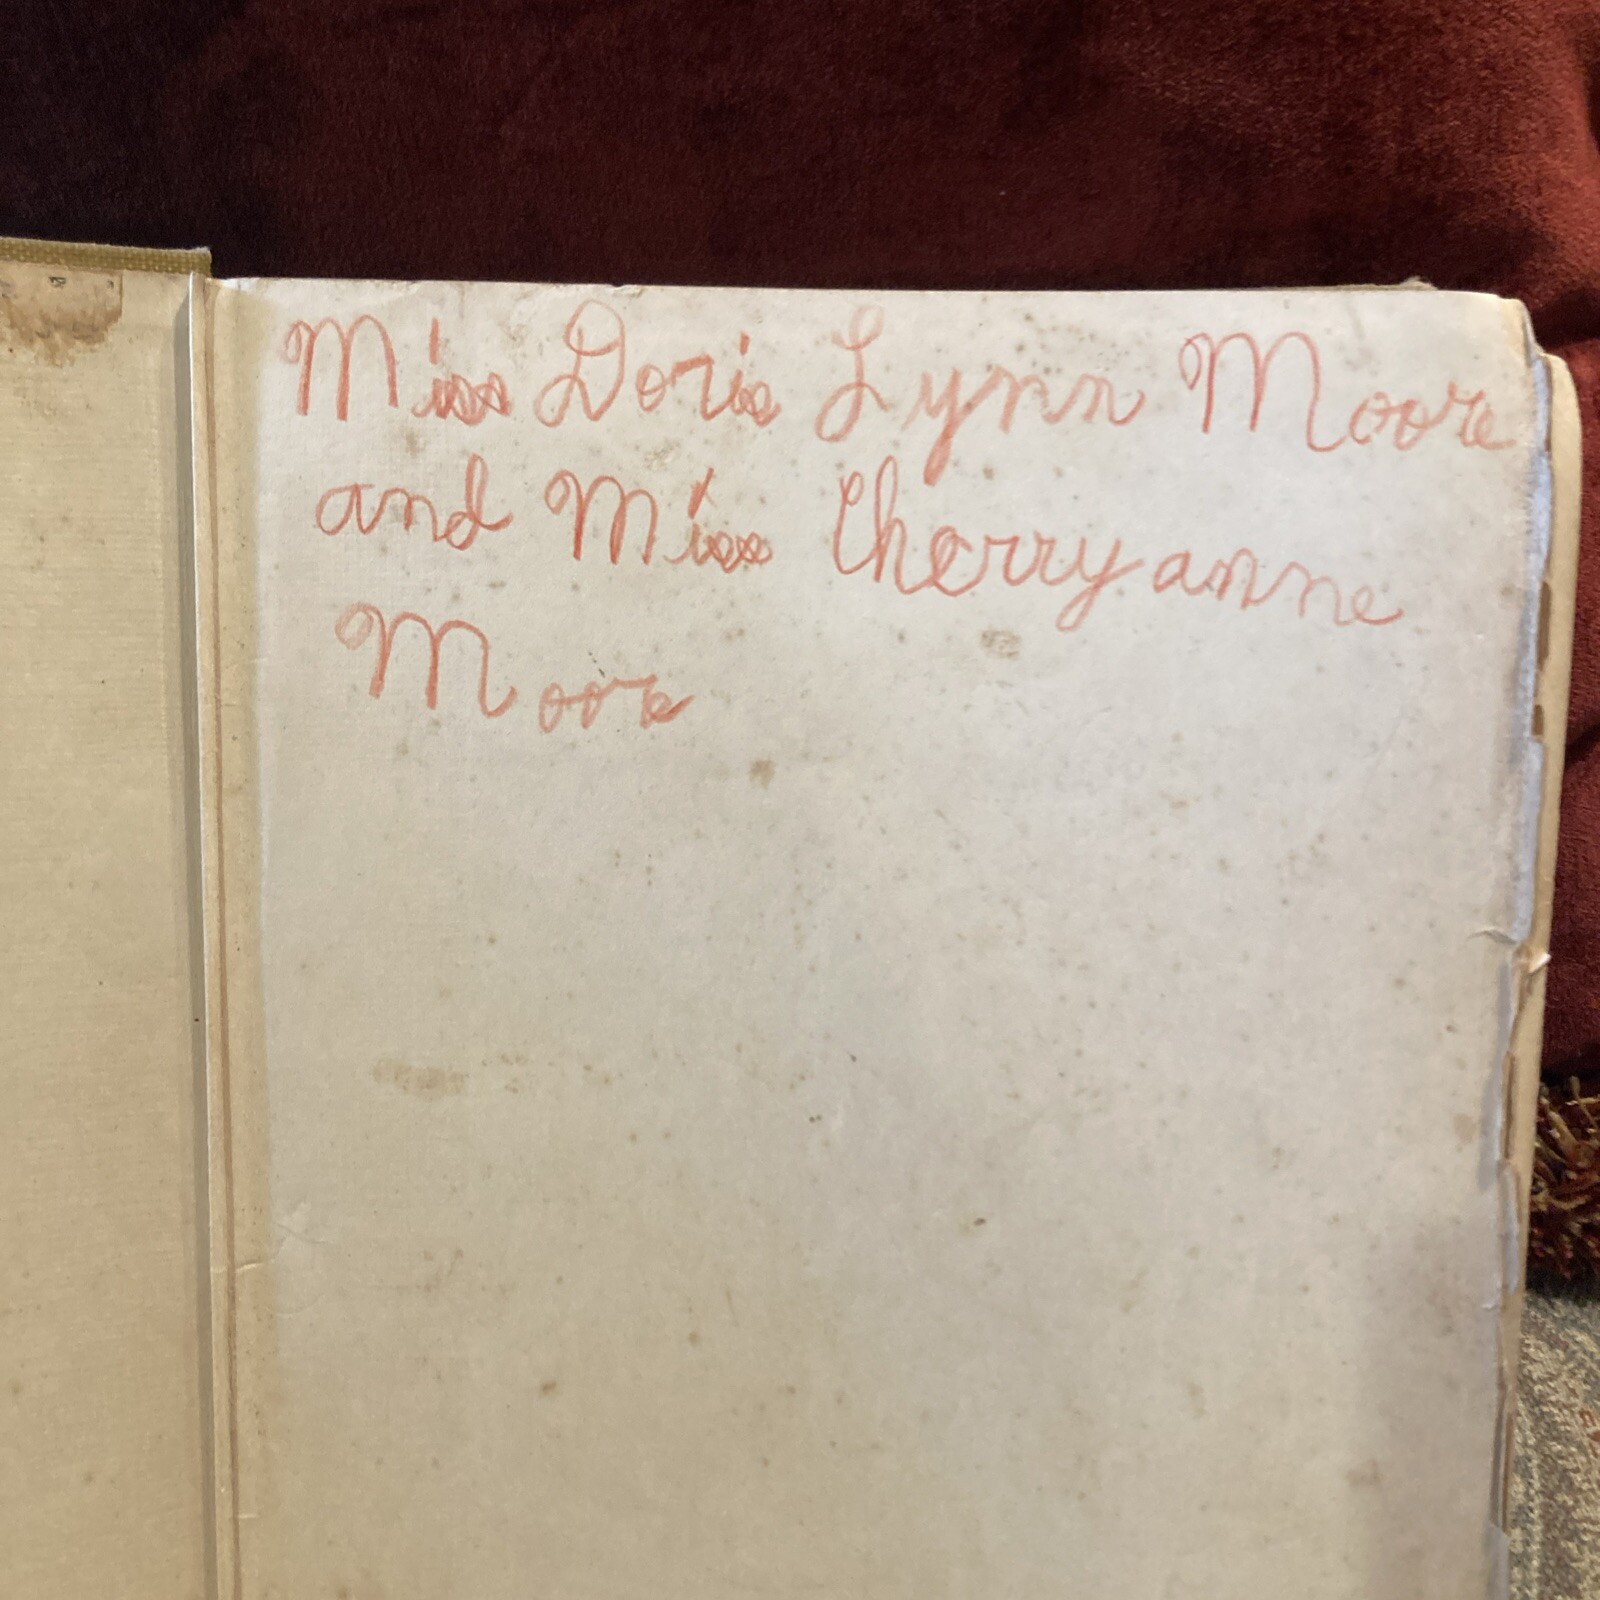 Miss Doris Lynn Moore
and Miss Cherryanne
Moore